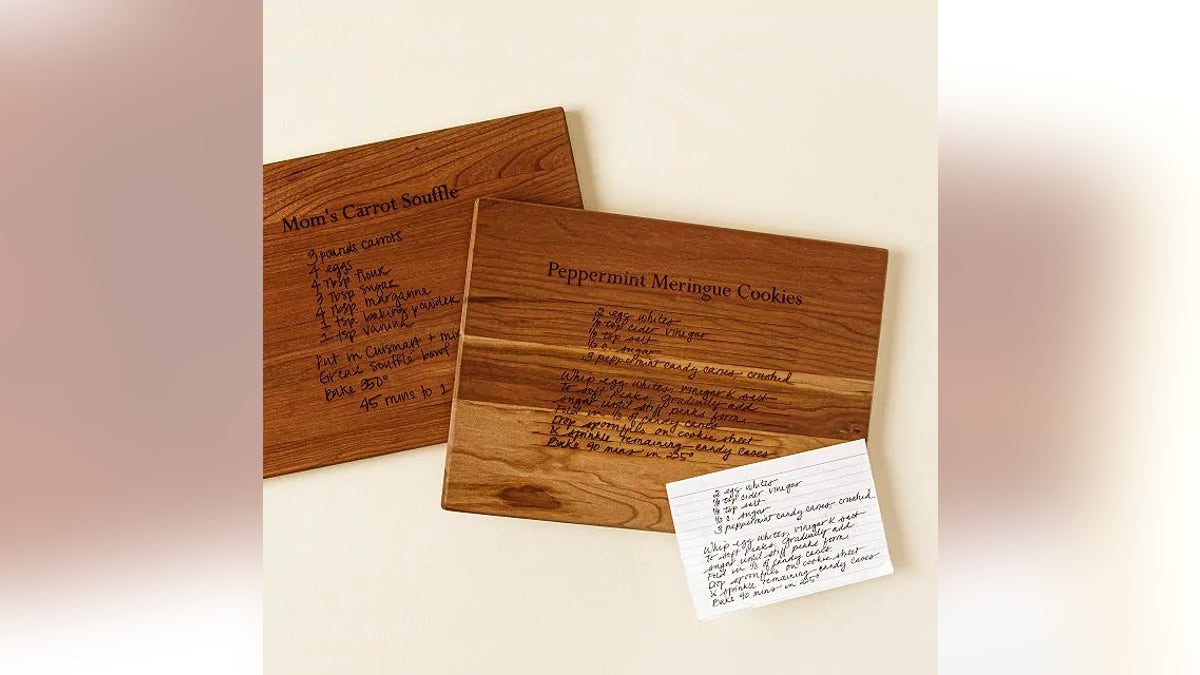 Mom's Carrot Souffle
3 pounds carrots
4 eggs
4 Tbsp flour
3 Tbsp sugar
4 Tbsp. margarine
1 tsp. baking powder
1 tsp vanilla
Put in Cuisinart + mix
Grease souffle bowl
Bake 350°
45 mins to 1
Peppermint Meringue Cookies
2 egg whites
tsp cider vinegar
tsp salt
c. sugar
3 peppermint candy canes, crushed
Whip egg whites, vinegar & salt
to soft peaks. Gradually add
sugar until stiff peaks form.
Fold in ⅓ of candy canes
Drop spoonfuls on cookie sheet
& sprinkle remaining candy canes
Bake 90 mins in 225°
2 egg whites
tsp cider vinegar
tsp salt
c. sugar
3 peppermint candy canes, crushed
Whip egg whites, vinegar & salt
to soft peaks. Gradually add
sugar until stiff peaks form.
Fold in ⅓ of candy canes
Drop spoonfuls on cookie sheet
& sprinkle remaining candy canes
Bake 90 mins in 225°